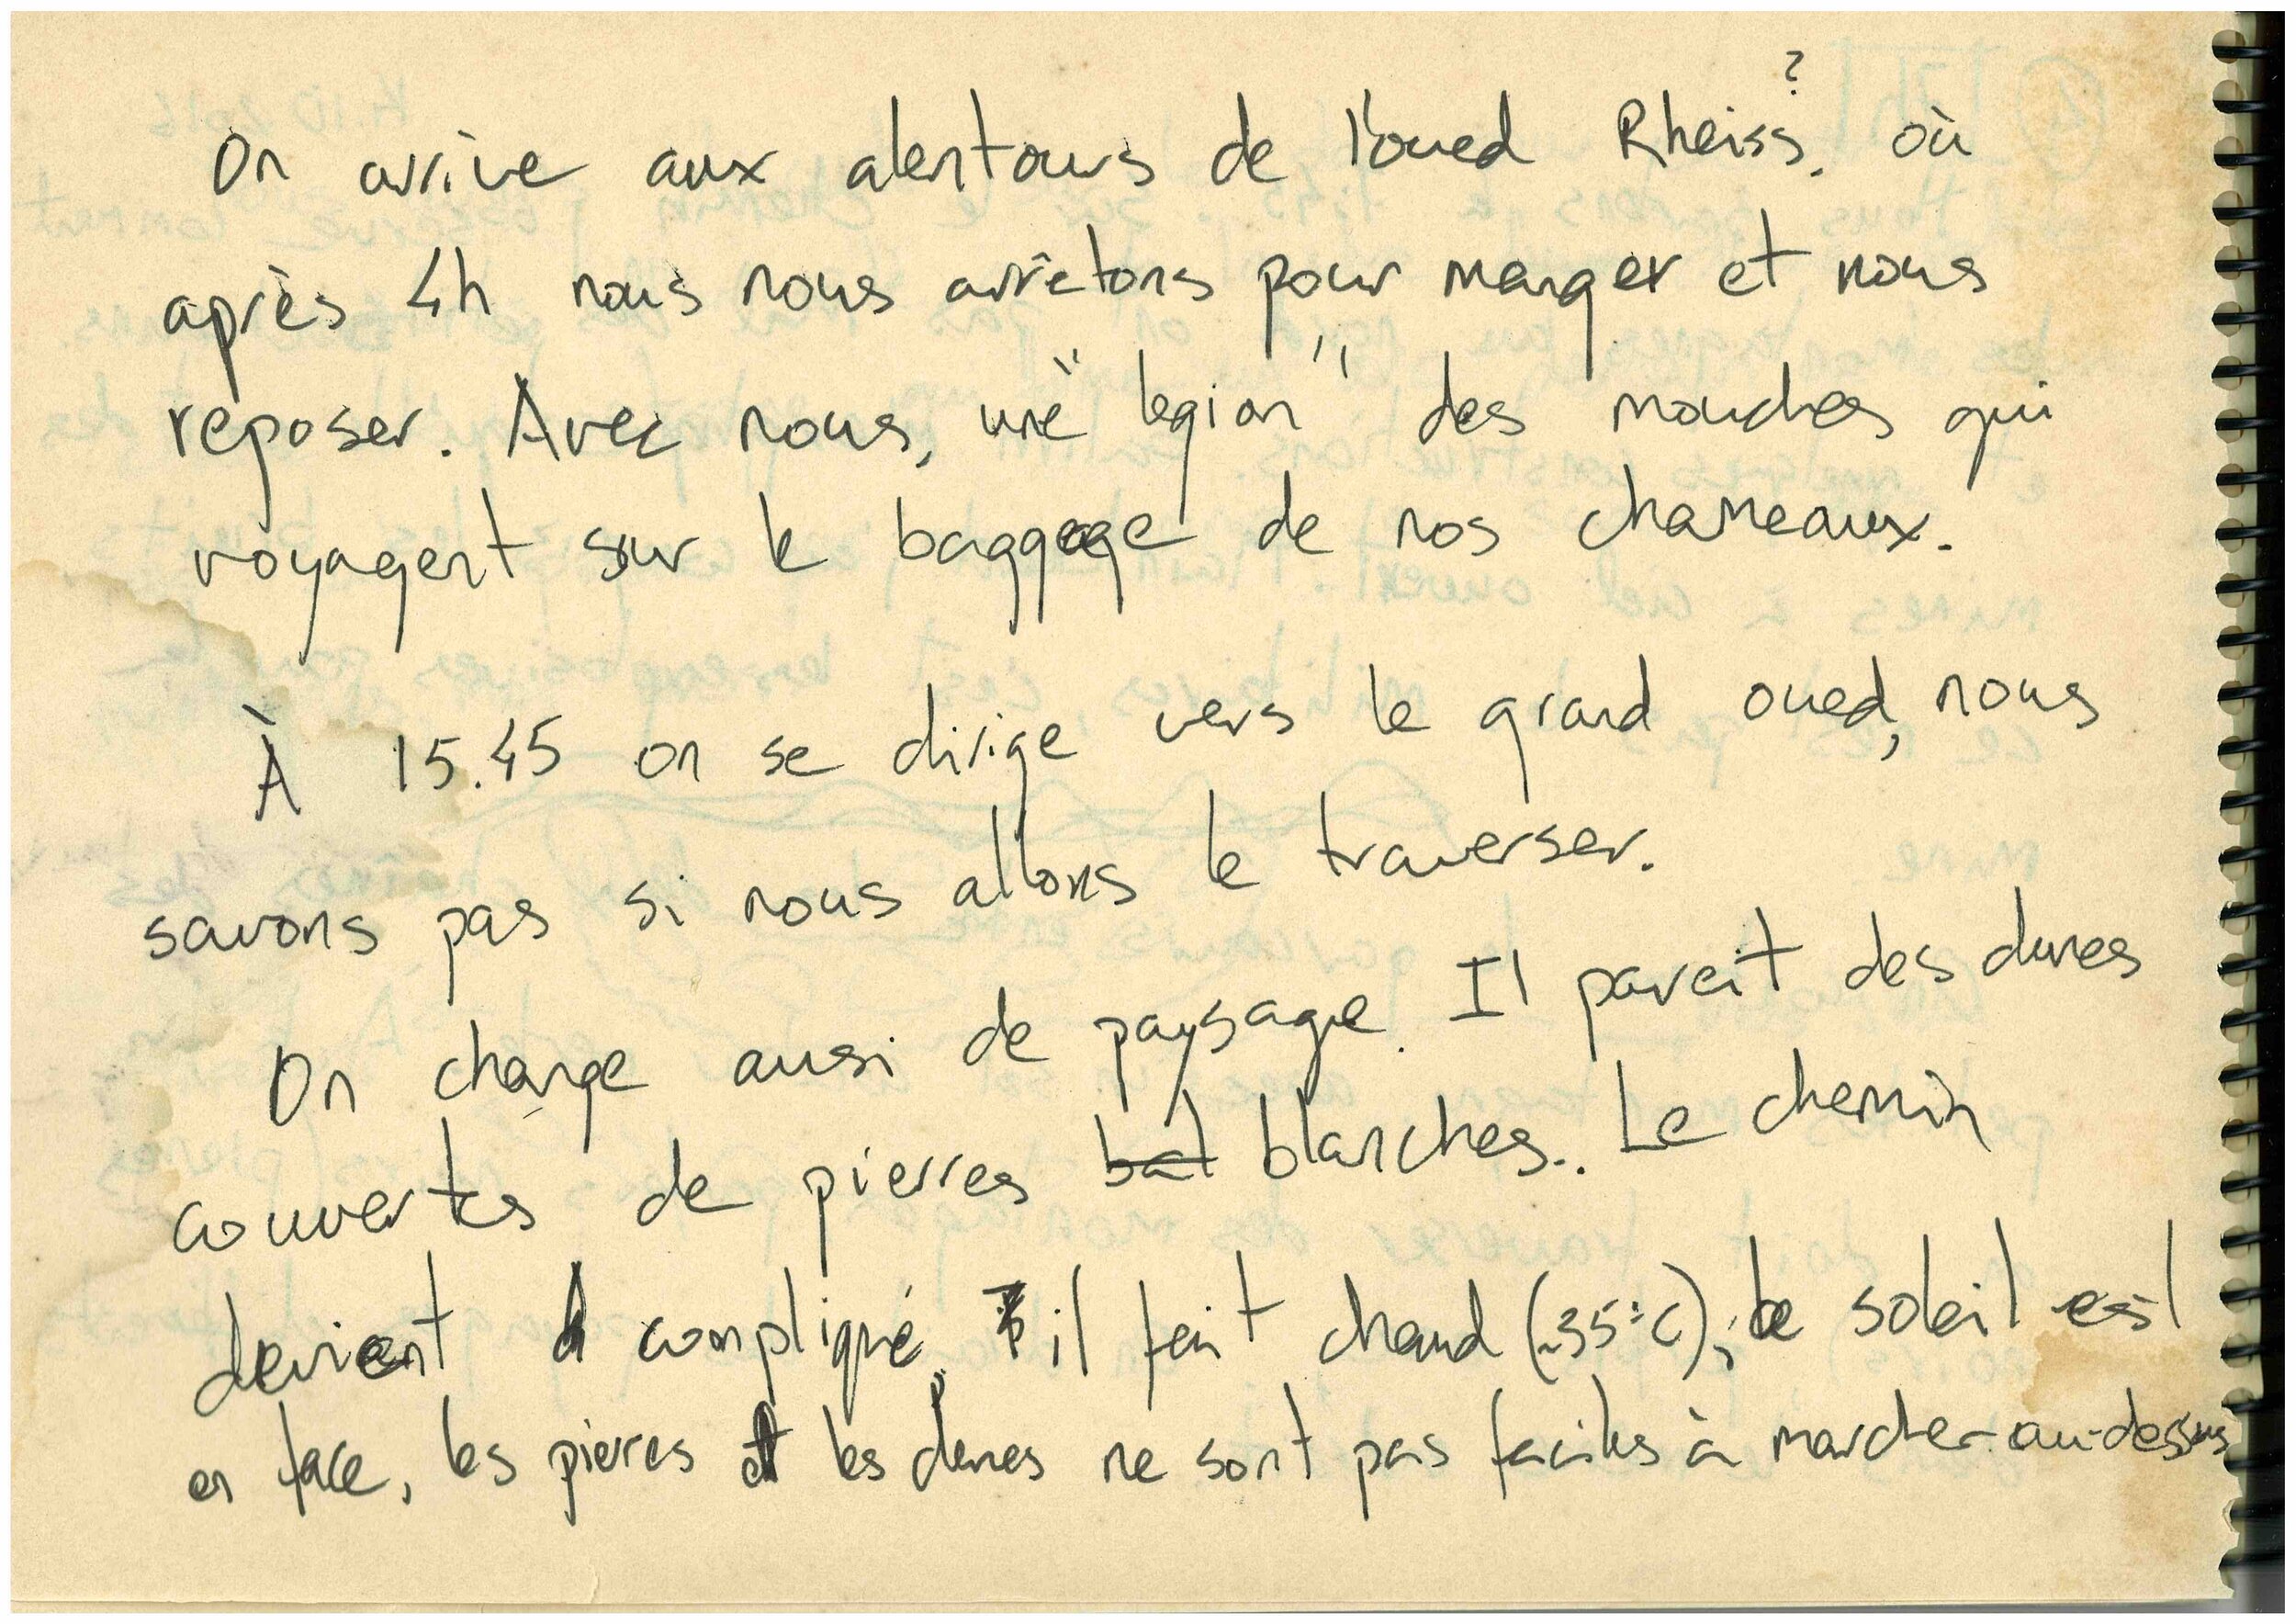 ?
On arrive aux alentours de l'oued Rheiss, où
après 4h nous nous arrêtons pour manger et nous
reposer. Avec nous, une "legion" des mouches qui
voyagent sur le baggage de nos chameaux.
À 15.45 on se dirige vers le grand oued, nous
savons pas si nous allons le traverser.
On change aussi de paysage. Il pareit des dunes
couvertes de pierres bal blanches.. Le chemin
devient compliqué, il fait chaud (~35°C), le soleil est
en face, les pierres et les dunes ne sont pas faciles à marcher au-dessus